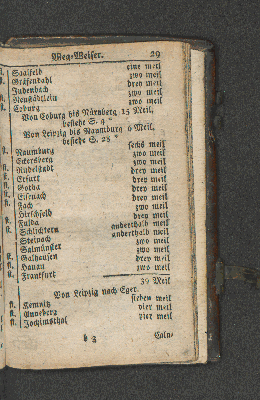 Weg-Weiser. 29
st. Saalfeld eine meil
st. Gräfenthal zwo meil
st. Judenbach drey meil
st. Neustädtlein zwo meil
st. Coburg zwo meil
Von Coburg bis Nürnberg 15 Meil,
besiehe S. 9
Von Leipzig bis Naumburg 6 Meil,
besiehe S. 28
st. Naumburg sechs meil
st. Eckersberg zwo meil
st. Budelstädt zwo meil
st. Erfurt drey meil
st. Gotha drey meil
st. Eisenach drey meil
st. Fach drey meil
st. Hirschfeld zwo meil
st. Fulda drey meil
st. Schlüchtern anderthalb meil
Steinach anderthalb meil
st. Salmünster zwo meil
st. Galhausen drey meil
st. Hanau zwo meil
st. Frankfurt
39 Meil
Von Leipzig nach Eger.
st. Kemnitz sieben meil
st. Anneberg vier meil
st. Jochimsthal vier meil
b 3 Caln-